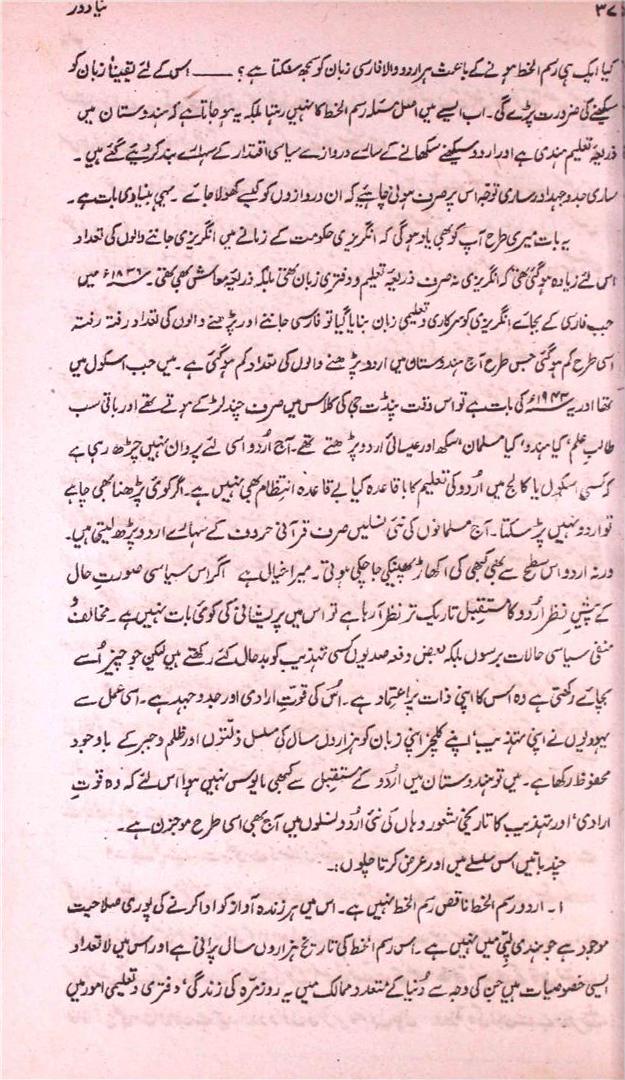 ۳۷ نیا دور
کیا ایک ہی رسم الخط ہونے کے باعث ہر اردو والا فارسی زبان کو سمجھ سکتا ہے؟ —— اس کے لئے یقیناً زبان کو
سیکھنے کی ضرورت پڑے گی۔ اب ایسے میں اصل مسئلہ رسم الخط کا نہیں رہتا بلکہ یہ ہو جاتا ہے کہ ہندوستان میں
ذریعۂ تعلیم ہندی ہے اور اردو سیکھنے سکھانے کے سارے دروازے سیاسی اقتدار کے سہارے بند کر دیئے گئے ہیں۔
ساری جدوجہد اور ساری توجہ اس پر صرف ہونی چاہیے کہ ان دروازوں کو کیسے کھولا جائے۔ یہی بنیادی بات ہے۔
یہ بات میری طرح آپ کو بھی یاد ہوگی کہ انگریزی حکومت کے زمانے میں انگریزی جاننے والوں کی تعداد
اس لئے زیادہ ہو گئی تھی کہ انگریزی نہ صرف ذریعۂ تعلیم و دفتری زبان تھی بلکہ ذریعۂ معاش بھی تھی۔ ۱۸۳۶ء میں
جب فارسی کے بجائے انگریزی کو سرکاری و تعلیمی زبان بنایا گیا تو فارسی جاننے اور پڑھنے والوں کی تعداد رفتہ رفتہ
اسی طرح کم ہو گئی جس طرح آج ہندوستان میں اردو پڑھنے والوں کی تعداد کم ہو گئی ہے۔ میں جب اسکول میں
تھا اور یہ ۱۹۴۳ء کی بات ہے تو اس وقت پنڈت جی کی کلاس میں صرف چند لڑکے ہوتے تھے اور باقی سب
طالب علم، کیا ہندو، کیا مسلمان، سکھ اور عیسائی اردو پڑھتے تھے۔ آج اُردو اسی لئے پروان نہیں چڑھ رہی ہے
کہ کسی اسکول یا کالج میں اُردو کی تعلیم کا باقاعدہ کیا بے قاعدہ انتظام بھی نہیں ہے۔ اگر کوئی پڑھنا بھی چاہے
تو اردو نہیں پڑ سکتا۔ آج مسلمانوں کی نئی نسلیں صرف قرآنی حروف کے سہارے اردو پڑھ لیتی ہیں۔
ورنہ اردو اس سطح سے بھی کبھی کی اکھاڑ پھینکی جا چکی ہوتی۔ میرا خیال ہے اگر اس سیاسی صورتِ حال
کے پیشِ نظر اُردو کا مستقبل تاریک تر نظر آ رہا ہے تو اس میں پریشانی کی کوئی بات نہیں ہے۔ مخالف و
منفی سیاسی حالات برسوں بلکہ بعض دفعہ صدیوں کسی تہذیب کو بدحال کئے رکھتے ہیں لیکن جو چیز اُسے
بچائے رکھتی ہے وہ اس کا اپنی ذات پر اعتماد ہے۔ اُس کی قوتِ ارادی اور جدوجہد ہے۔ اسی عمل سے
یہودیوں نے اپنی تہذیب، اپنے کلچر، اپنی زبان کو ہزاروں سال کی مسلسل ذلّتوں اور ظلم و جبر کے باوجود
محفوظ رکھا ہے۔ میں تو ہندوستان میں اُردو کے مستقبل سے کبھی مایوس نہیں ہوا اس لئے کہ وہ قوتِ
ارادی، اور تہذیب کا تاریخی شعور وہاں کی نئی اُردو نسلوں میں آج بھی اسی طرح موجزن ہے۔
چند باتیں اس سلسلے میں اور عرض کرتا چلوں:۔
۱۔ اردو رسم الخط ناقص رسم الخط نہیں ہے۔ اس میں ہر زندہ آواز کو ادا کرنے کی پوری صلاحیت
موجود ہے جو ہندی لپی میں نہیں ہے۔ اس رسم الخط کی تاریخ ہزاروں سال پرانی ہے اور اس میں لاتعداد
ایسی خصوصیات ہیں جن کی وجہ سے دُنیا کے متعدد ممالک میں یہ روزمرّہ کی زندگی، دفتری و تعلیمی امور میں